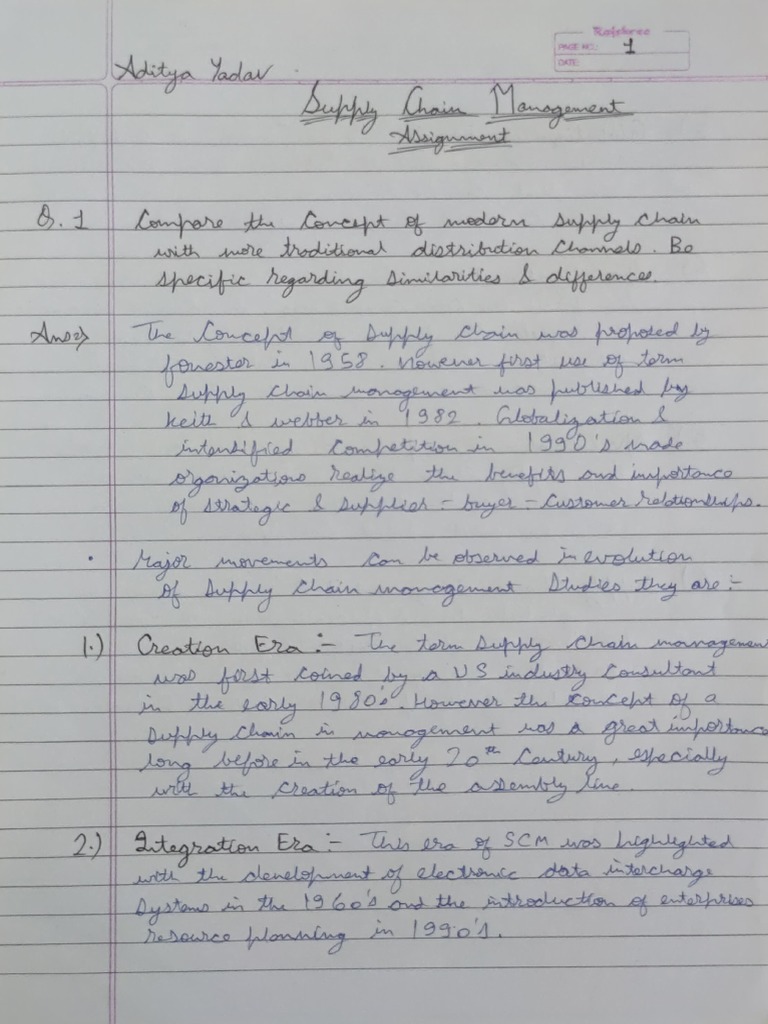 Rajshree
PAGE NO.: 1
DATE:
Aditya Yadav
Supply Chain Management
Assignment
Q.1 Compare the Concept of modern supply chain
with more traditional distribution channels. Be
specific regarding similarities & differences.
Ans=> The Concept of supply chain was proposed by
forrester in 1958. However first use of term
supply chain management was published by
keith & webber in 1982. Globalization &
intensified competition in 1990's made
organizations realize the benefits and importance
of strategic & supplier - buyer - customer relationships.
• Major movements can be observed in evolution
of supply chain management studies they are :-
1.) Creation Era :- The term supply chain managemen
was first coined by a US industry consultant
in the early 1980's. However the concept of a
supply chain in management was a great importance
long before in the early 20th Century, especially
with the creation of the assembly line.
2.) Integration Era :- This era of SCM was highlighted
with the development of electronic data interchange
systems in the 1960's and the introduction of enterprises
resource planning in 1990's.